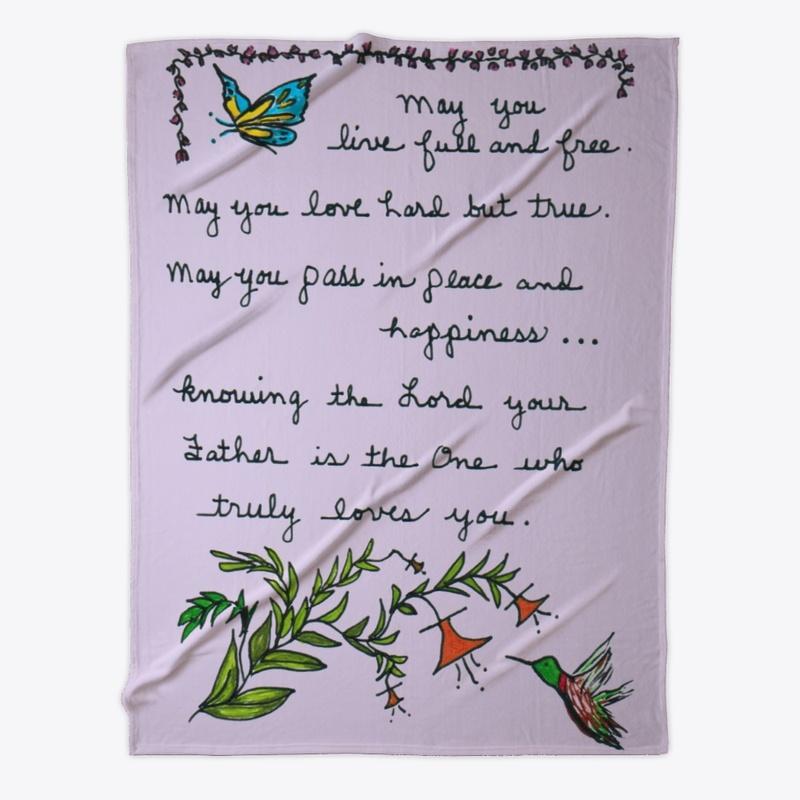 May you
live full and free.
May you love hard but true.
May you pass in peace and
happiness...
knowing the Lord your
Father is the One who
truly loves you.